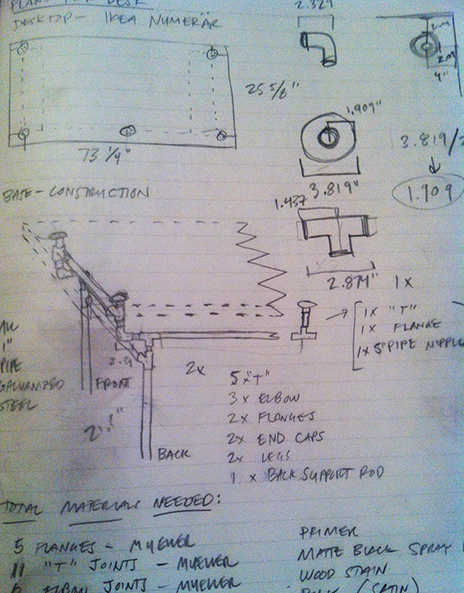 DESKTOP - IKEA NUMERÄR
2.329
25 5/8"
73 1/4"
1.909"
3.819"
4"
3.819/2
1.909
BASE - CONSTRUCTION
1.437
2.874"
1X
1X "T"
1X FLANGE
1X 5" PIPE NIPPLE
1"
PIPE
GALVANIZED
STEEL
FRONT
BACK
2X
5X "T"
3X ELBOW
2X FLANGES
2X END CAPS
2X LEGS
1 X BACK SUPPORT ROD
TOTAL MATERIALS NEEDED:
5 FLANGES - MUELLER
11 "T" JOINTS - MUELLER
JOINTS - MUELLER
PRIMER
MATTE BLACK SPRAY
WOOD STAIN
(SATIN)